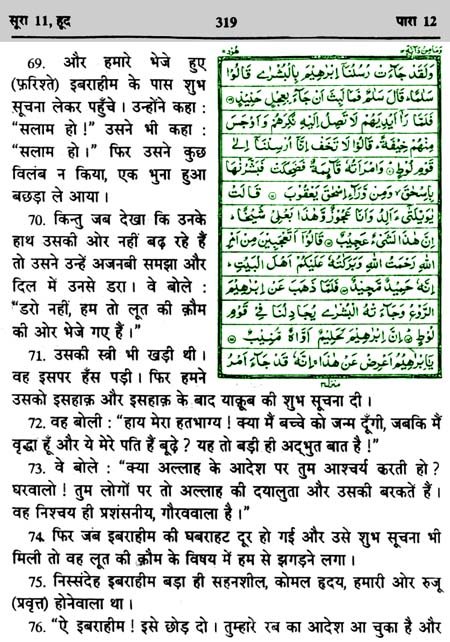 सूरा 11, हूद
319
पारा 12
وما من دآبة ١٢
هود
وَلَقَدْ جَآءَتْ رُسُلُنَآ اِبْرٰهِيْمَ بِالْبُشْرٰى قَالُوْا
سَلٰمًا قَالَ سَلٰمٌ فَمَا لَبِثَ اَنْ جَآءَ بِعِجْلٍ حَنِيْذٍ
فَلَمَّا رَآٰ اَيْدِيَهُمْ لَا تَصِلُ اِلَيْهِ نَكِرَهُمْ وَاَوْجَسَ
مِنْهُمْ خِيْفَةً قَالُوْا لَا تَخَفْ اِنَّآ اُرْسِلْنَآ اِلٰى
قَوْمِ لُوْطٍ وَامْرَاَتُهٗ قَآئِمَةٌ فَضَحِكَتْ فَبَشَّرْنٰهَا
بِاِسْحٰقَ وَمِنْ وَّرَآءِ اِسْحٰقَ يَعْقُوْبَ قَالَتْ
يٰوَيْلَتٰٓى ءَاَلِدُ وَاَنَا عَجُوْزٌ وَّهٰذَا بَعْلِيْ شَيْخًا
اِنَّ هٰذَا لَشَيْءٌ عَجِيْبٌ قَالُوْٓا اَتَعْجَبِيْنَ مِنْ اَمْرِ
اللهِ رَحْمَتُ اللهِ وَبَرَكٰتُهٗ عَلَيْكُمْ اَهْلَ الْبَيْتِ
اِنَّهٗ حَمِيْدٌ مَّجِيْدٌ فَلَمَّا ذَهَبَ عَنْ اِبْرٰهِيْمَ
الرَّوْعُ وَجَآءَتْهُ الْبُشْرٰى يُجَادِلُنَا فِيْ قَوْمِ
لُوْطٍ اِنَّ اِبْرٰهِيْمَ لَحَلِيْمٌ اَوَّاهٌ مُّنِيْبٌ
يٰٓاِبْرٰهِيْمُ اَعْرِضْ عَنْ هٰذَا اِنَّهٗ قَدْ جَآءَ اَمْرُ
69. और हमारे भेजे हुए
(फ़रिश्ते) इबराहीम के पास शुभ
सूचना लेकर पहुँचे। उन्होंने कहा :
“सलाम हो!” उसने भी कहा :
“सलाम हो।” फिर उसने कुछ
विलंब न किया, एक भुना हुआ
बछड़ा ले आया।
70. किन्तु जब देखा कि उनके
हाथ उसकी ओर नहीं बढ़ रहे हैं
तो उसने उन्हें अजनबी समझा और
दिल में उनसे डरा। वे बोले :
“डरो नहीं, हम तो लूत की क़ौम
की ओर भेजे गए हैं।”
71. उसकी स्त्री भी खड़ी थी।
वह इसपर हँस पड़ी। फिर हमने
उसको इसहाक़ और इसहाक़ के बाद याक़ूब की शुभ सूचना दी।
72. वह बोली : “हाय मेरा हतभाग्य! क्या मैं बच्चे को जन्म दूँगी, जबकि मैं
वृद्धा हूँ और ये मेरे पति हैं बूढ़े? यह तो बड़ी ही अद्भुत बात है!”
73. वे बोले : “क्या अल्लाह के आदेश पर तुम आश्चर्य करती हो?
घरवालो! तुम लोगों पर तो अल्लाह की दयालुता और उसकी बरकतें हैं।
वह निश्चय ही प्रशंसनीय, गौरववाला है।”
74. फिर जब इबराहीम की घबराहट दूर हो गई और उसे शुभ सूचना भी
मिली तो वह लूत की क़ौम के विषय में हम से झगड़ने लगा।
75. निस्संदेह इबराहीम बड़ा ही सहनशील, कोमल हृदय, हमारी ओर रुजू
(प्रवृत्त) होनेवाला था।
76. “ऐ इबराहीम! इसे छोड़ दो। तुम्हारे रब का आदेश आ चुका है और